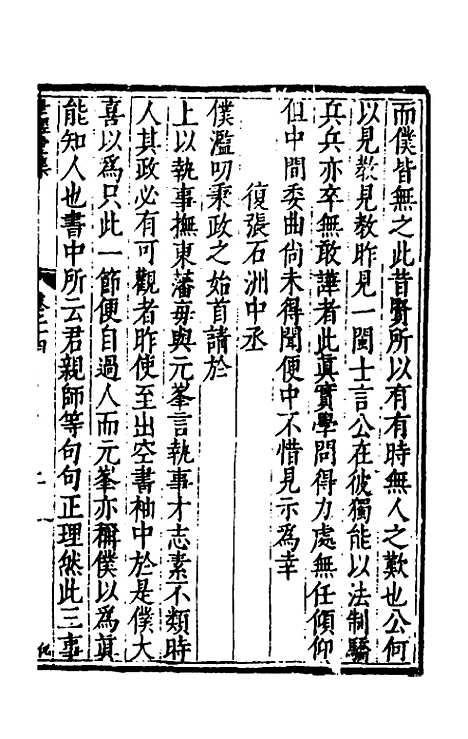 而僕皆無之此昔賢所以有有時無人之歎也公何
以見教見教昨見一閩士言公在彼獨能以法制驕
兵兵亦卒無敢譁者此真實學問得力處無任傾仰
但中間委曲尚未得聞便中不惜見示為幸
復張石洲中丞
僕濫叨秉政之始首請於
上以執事撫東藩毎與元峯言執事才志素不類時
人其政必有可觀者昨使至出空書袖中於是僕大
喜以為只此一節便自過人而元峯亦稱僕以為真
能知人也書中所云君親師等句句正理然此三事